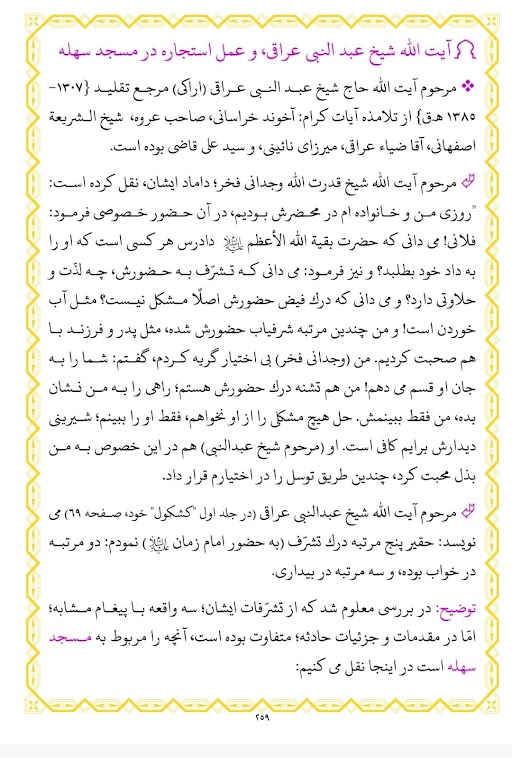 آیت الله شیخ عبد النبی عراقی، و عمل استجاره در مسجد سهله
مرحوم آیت الله حاج شیخ عبـد النـبی عـراقی (اراکی) مرجـع تقلیـد {۱۳۰۷-
۱۳۸۵ ه‍.ق} از تلامذه آیات کرام: آخوند خراسانی، صاحب عروه، شیخ الـشریعة
اصفهانی، آقا ضیاء عراقی، میرزای نائینی، و سید علی قاضی بوده است.
مرحوم آیت الله شیخ قدرت الله وجدانی فخر؛ داماد ایشان، نقل کرده اسـت:
"روزی مـن و خـانواده ام در محـضرش بودیم، در آن حـضور خـصوصی فرمـود:
فلانی! می دانی که حضرت بقیة الله الأعظم علیه السلام دادرس هر کسی است که او را
به داد خود بطلبد؟ و نیز فرمـود: می دانی کـه تـشرّف به حـضورش، چـه لذّت و
حلاوتی دارد؟ و می دانی که درك فیض حضورش اصلًا مـشکل نیـست؟ مثـل آب
خوردن است! و من چندین مرتبه شرفیاب حضورش شده، مثل پدر و فرزنـد بـا
هم صحبت کردیم. من (وجدانی فخر) بی اختیار گریه کـردم، گفـتم: شـما را به
جان او قسم می دهم! من هم تشنه درك حضورش هستم؛ راهی را به مـن نـشان
بده، من فقط ببینمش. حل هیچ مشکلی را از او نخواهم، فقط او را ببینم؛ شیرینی
دیدارش برایم کافی است. او (مرحوم شیخ عبدالنبی) هم در این خصوص بـه مـن
بذل محبت کرد، چندین طریق توسل را در اختیارم قرار داد.
مرحوم آیت الله شیخ عبدالنبی عراقی (در جلد اول "کشکول" خود، صـفحه ۶۹) می
نویسد: حقیر پنج مرتبه درك تشرّف (به حضور امام زمان علیه السلام) نمودم: دو مرتبـه
در خواب بوده، و سه مرتبه در بیداری.
توضیح: در بررسی معلوم شد که از تشرّفات ایشان؛ سه واقعه بـا پیغـام مـشابه؛
امّا در مقدمات و جزئیات حادثه؛ متفاوت بوده است، آنچه را مربوط به مـسجد
سهله است در اینجا نقل می کنیم:
۲۵۹